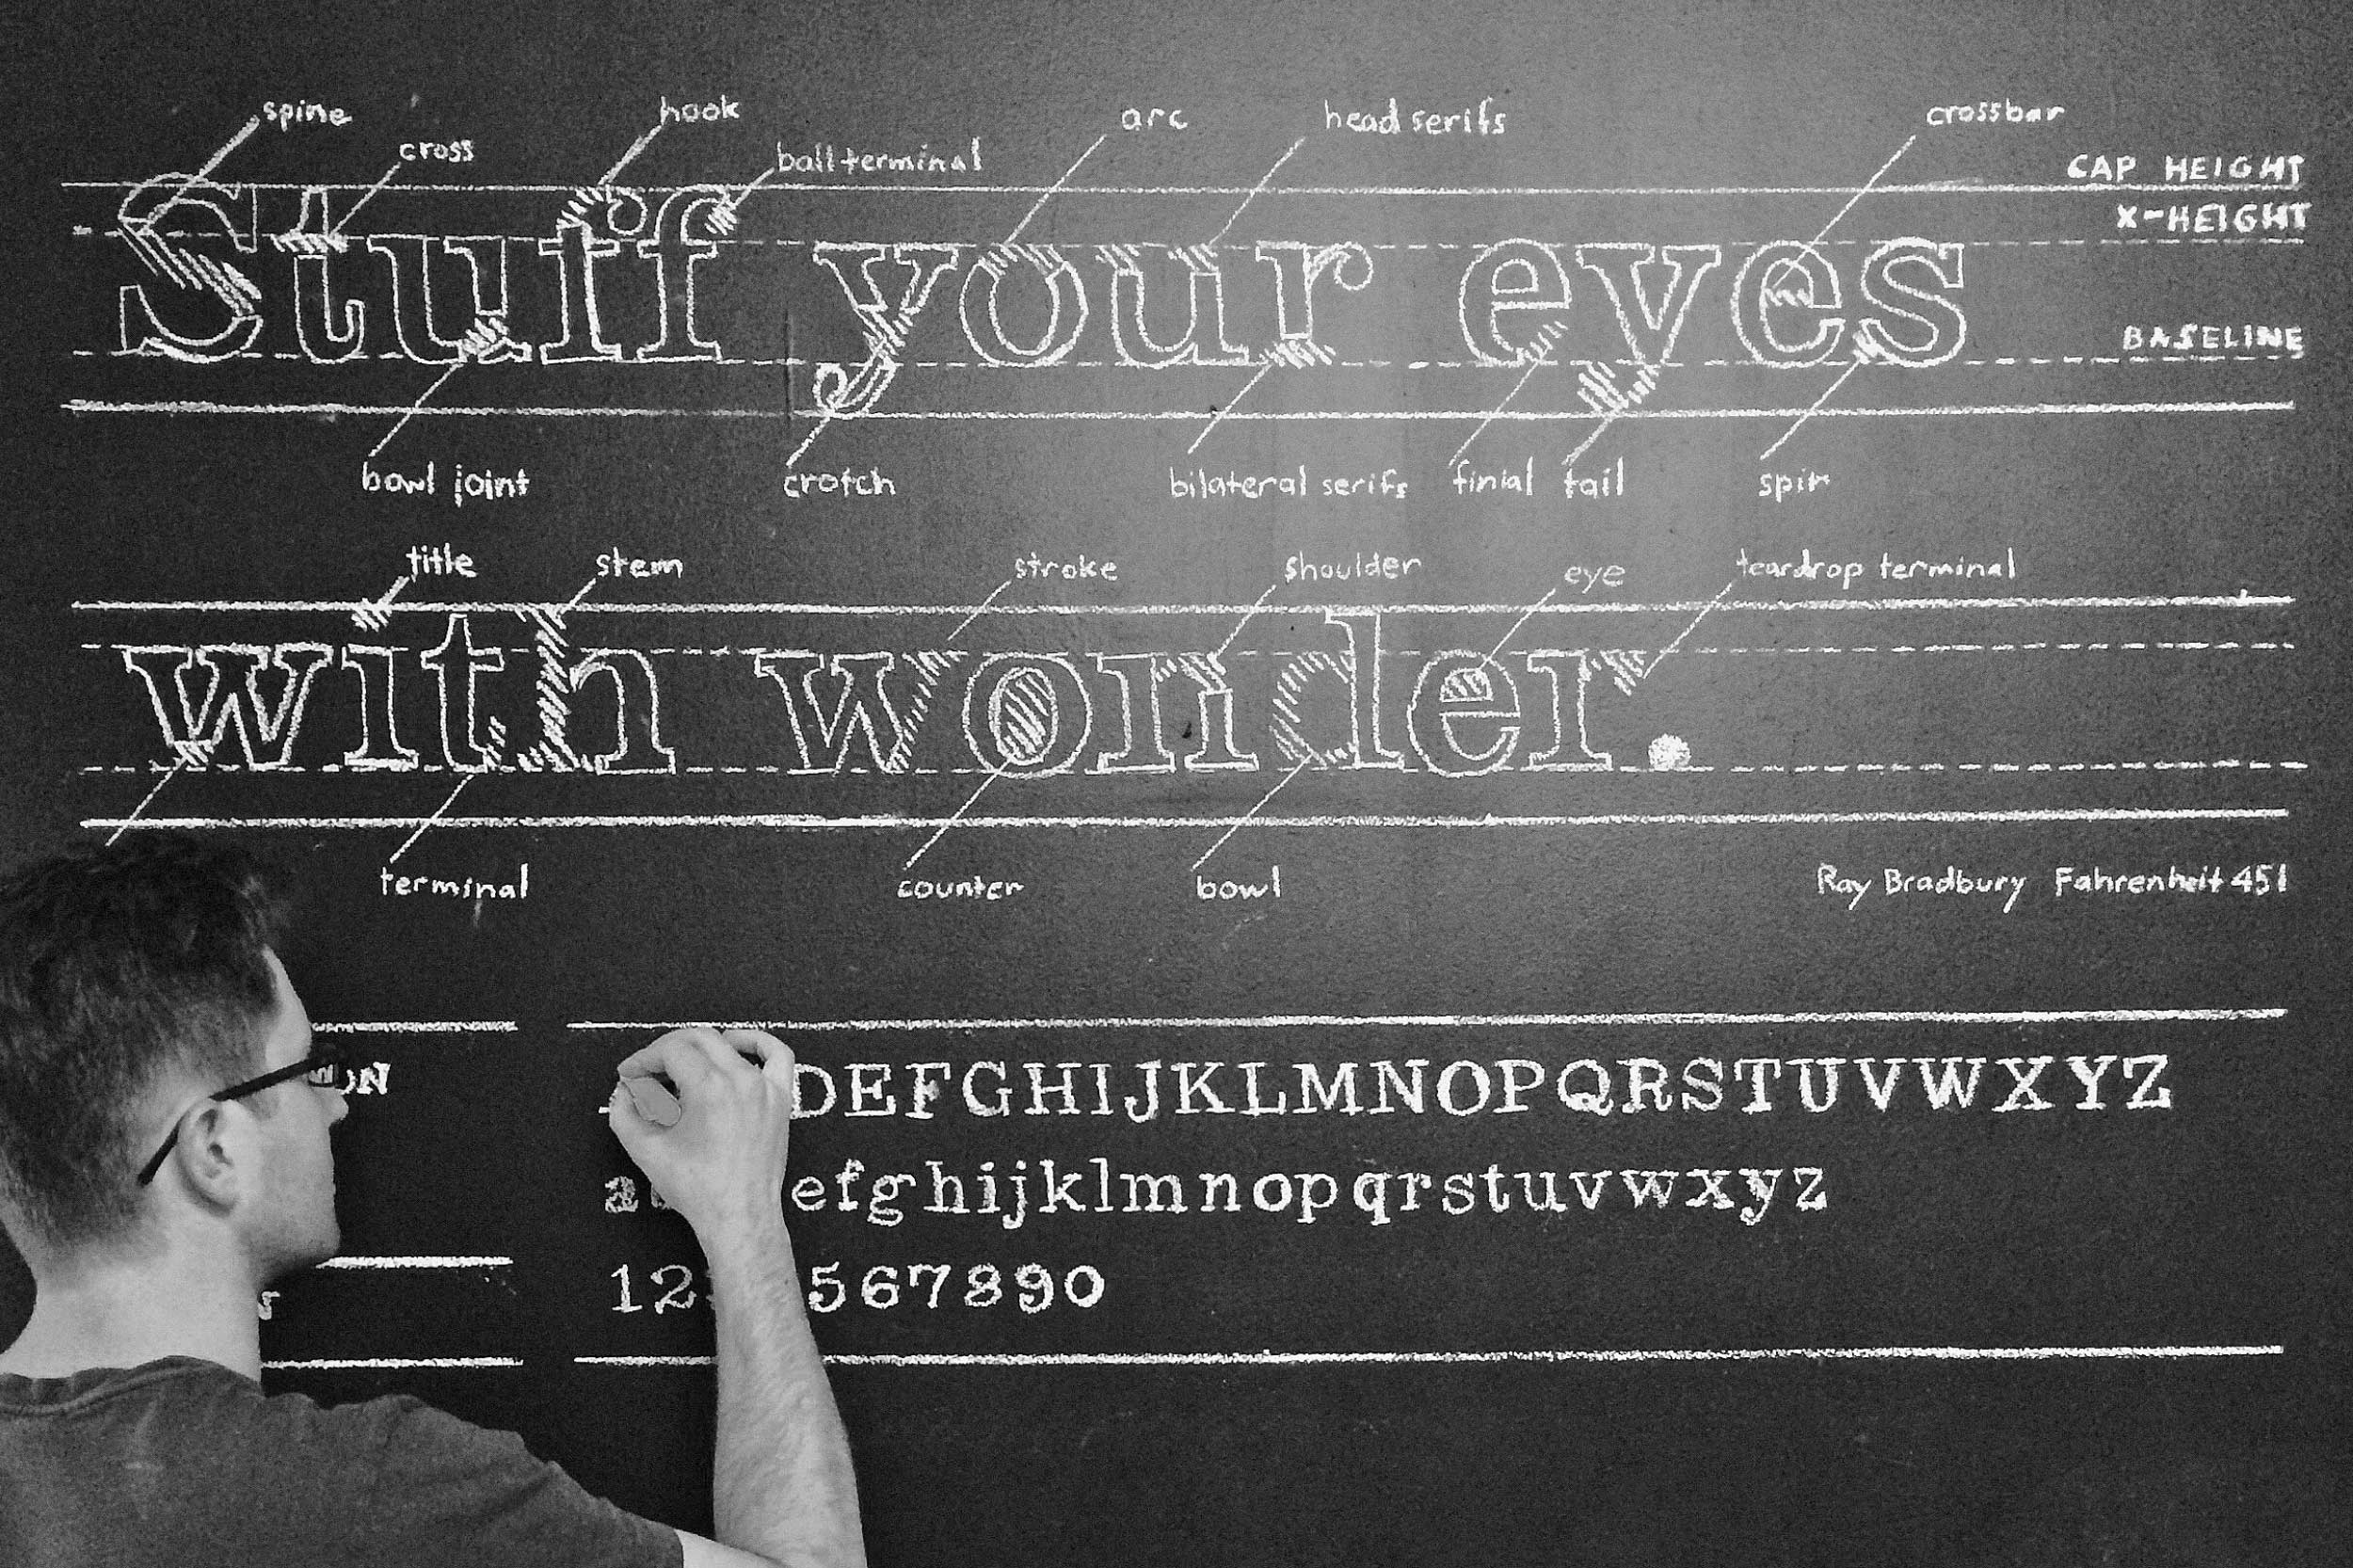 spine hook arc head serifs crossbar
cross ball terminal
CAP HEIGHT
X-HEIGHT
Stuff your eyes
BASELINE
bowl joint crotch bilateral serifs finial tail spin
title stem stroke shoulder eye teardrop terminal
with wonder.
terminal counter bowl
Ray Bradbury Fahrenheit 451
DEFGHIJKLMNOPQRSTUVWXYZ
a efghijklmnopqrstuvwxyz
12 567890